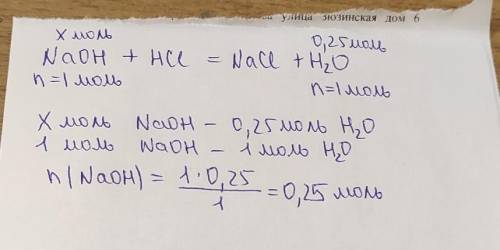 улица зюзинская дом 6
X моль 0,25 моль
NaOH + HCl = NaCl + H₂O
n = 1 моль n = 1 моль
X моль NaOH – 0,25 моль H₂O
1 моль NaOH – 1 моль H₂O
n(NaOH) = 1·0,25 / 1 = 0,25 моль